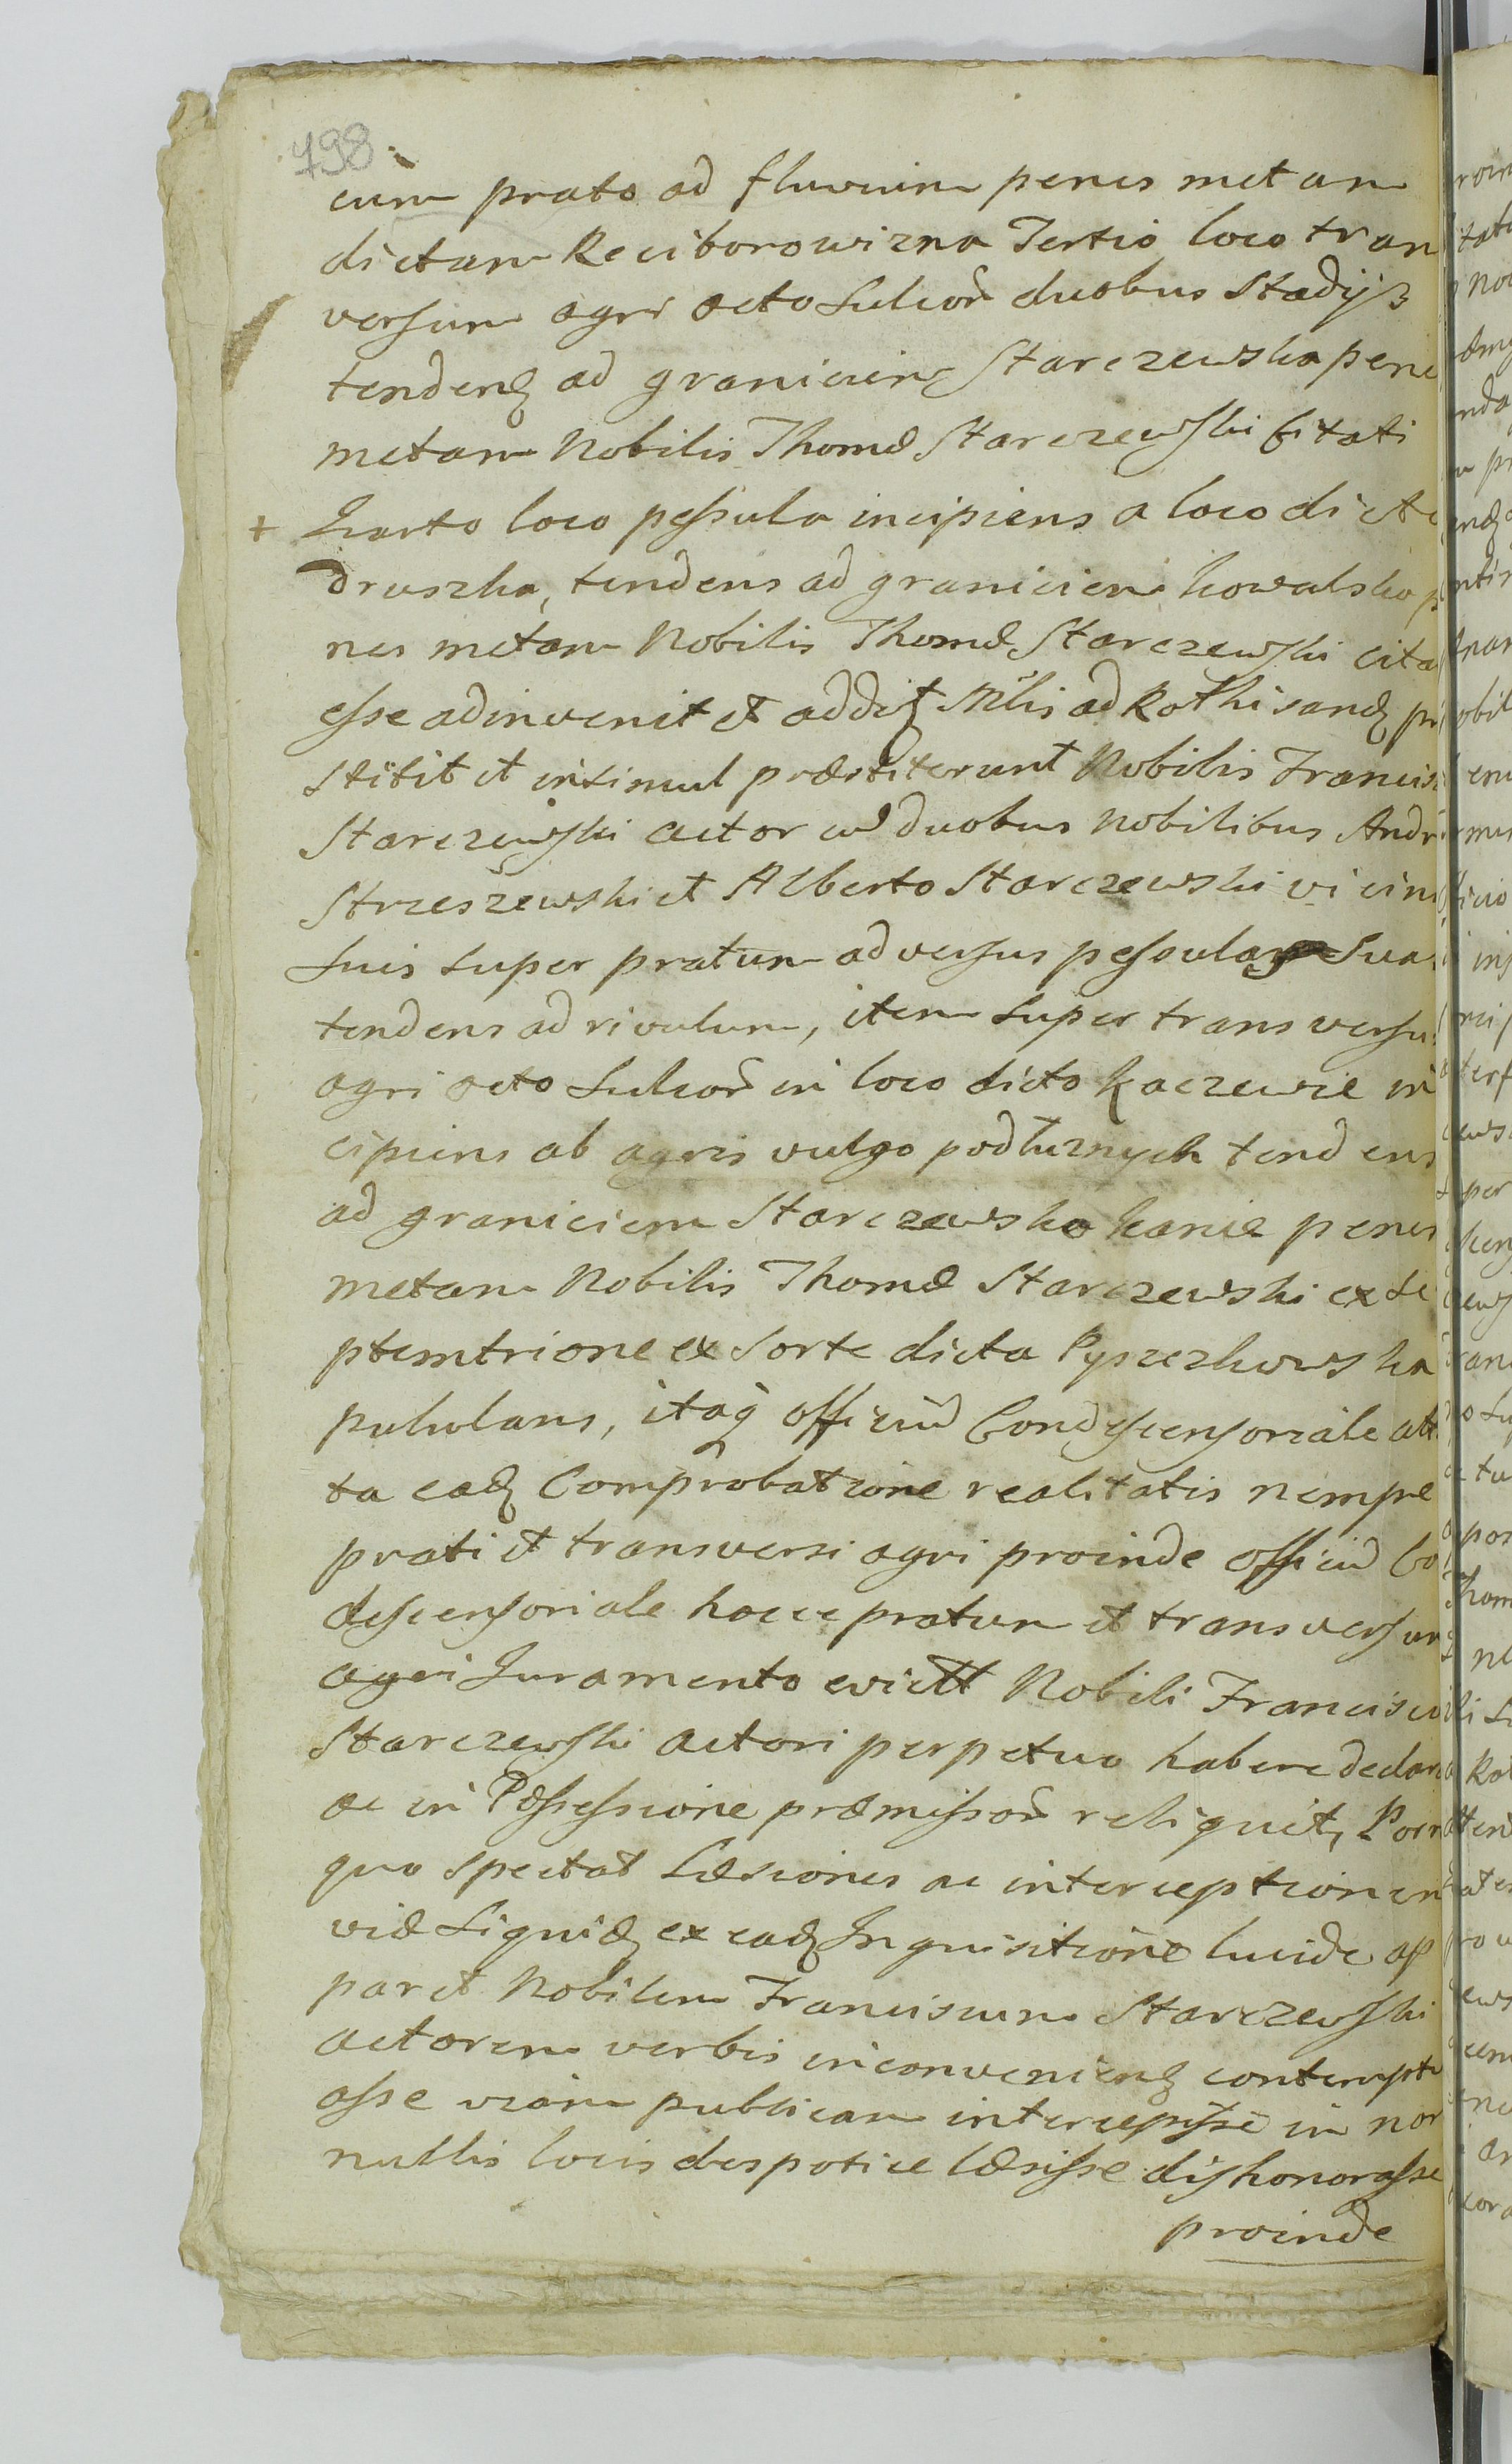 798
cum prato ad fluvium penes metam
dictam Reciborowizna Tertio loco tran
versum agri octo Sulcor duobus Stadijs
tendenq ad graniciem Starczewska pene
metam Nobilis Thomæ Starczewski Citati
+ Quarto loco pessula incipiens a loco dicto
Druszka, tendens ad graniciem kowalska p
nes metam Nobilis Thomæ Starczewski cita
esse adinvenit et addit Mlis ad Rothisandq præ
stitit et insimul præstiterunt Nobilis Francis
Starczewski actor cu duobus Nobilibus Andr
Strzeszewski et Alberto Starczewski vicin
Suis super pratum adversus pessulam Sua
tendens ad rivulum, item super transversu
agri octo Sulcor in loco dicto Kaczewie in
cipiens ab agris vulgo podłuznych tendens
ad graniciem Starczewsko kanie penes
metam Nobilis Thomæ Starczewski ex Se
ptemtrione ex Sorte dicta Pyszczkowska
pululans, itaq officiu Condescensoriale atte
ta eadq Comprobatione realitatis nempe
prati et transversi agri proinde officiu Co
descensoriale hocce pratum et transversum
agri Juramento evictt Nobili Francisco
Starczewski actori perpetuo habere declara
ac in Possessione præmissor reliquit, Porr
quo spectat Læsiones ac interceptionem
viæ Siquidq ex eadq Inquisitione lucide ap
paret Nobilem Franciscum Starczewski
actorem verbis inconvenienq contempt
osse viam publicam intercepisse in non
nullis locis despotice læsisse dishonorasse
proinde